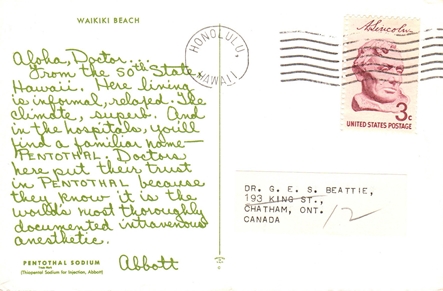 WAIKIKI BEACH
Aloha, Doctor...
from the 50th State,
Hawaii. Here living
is informal, relaxed. The
climate, superb. And
in the hospitals, you'll
find a familiar name—
PENTOTHAL. Doctors
here put their trust
in PENTOTHAL because
they know it is the
world's most thoroughly
documented intravenous
anesthetic.
Abbott
PENTOTHAL SODIUM
(Thiopental Sodium for Injection, Abbott)
HONOLULU,
HAWAII
A. Lincoln
3c
UNITED STATES POSTAGE
DR. G. E. S. BEATTIE,
193 KING ST.,
CHATHAM, ONT.
CANADA
12